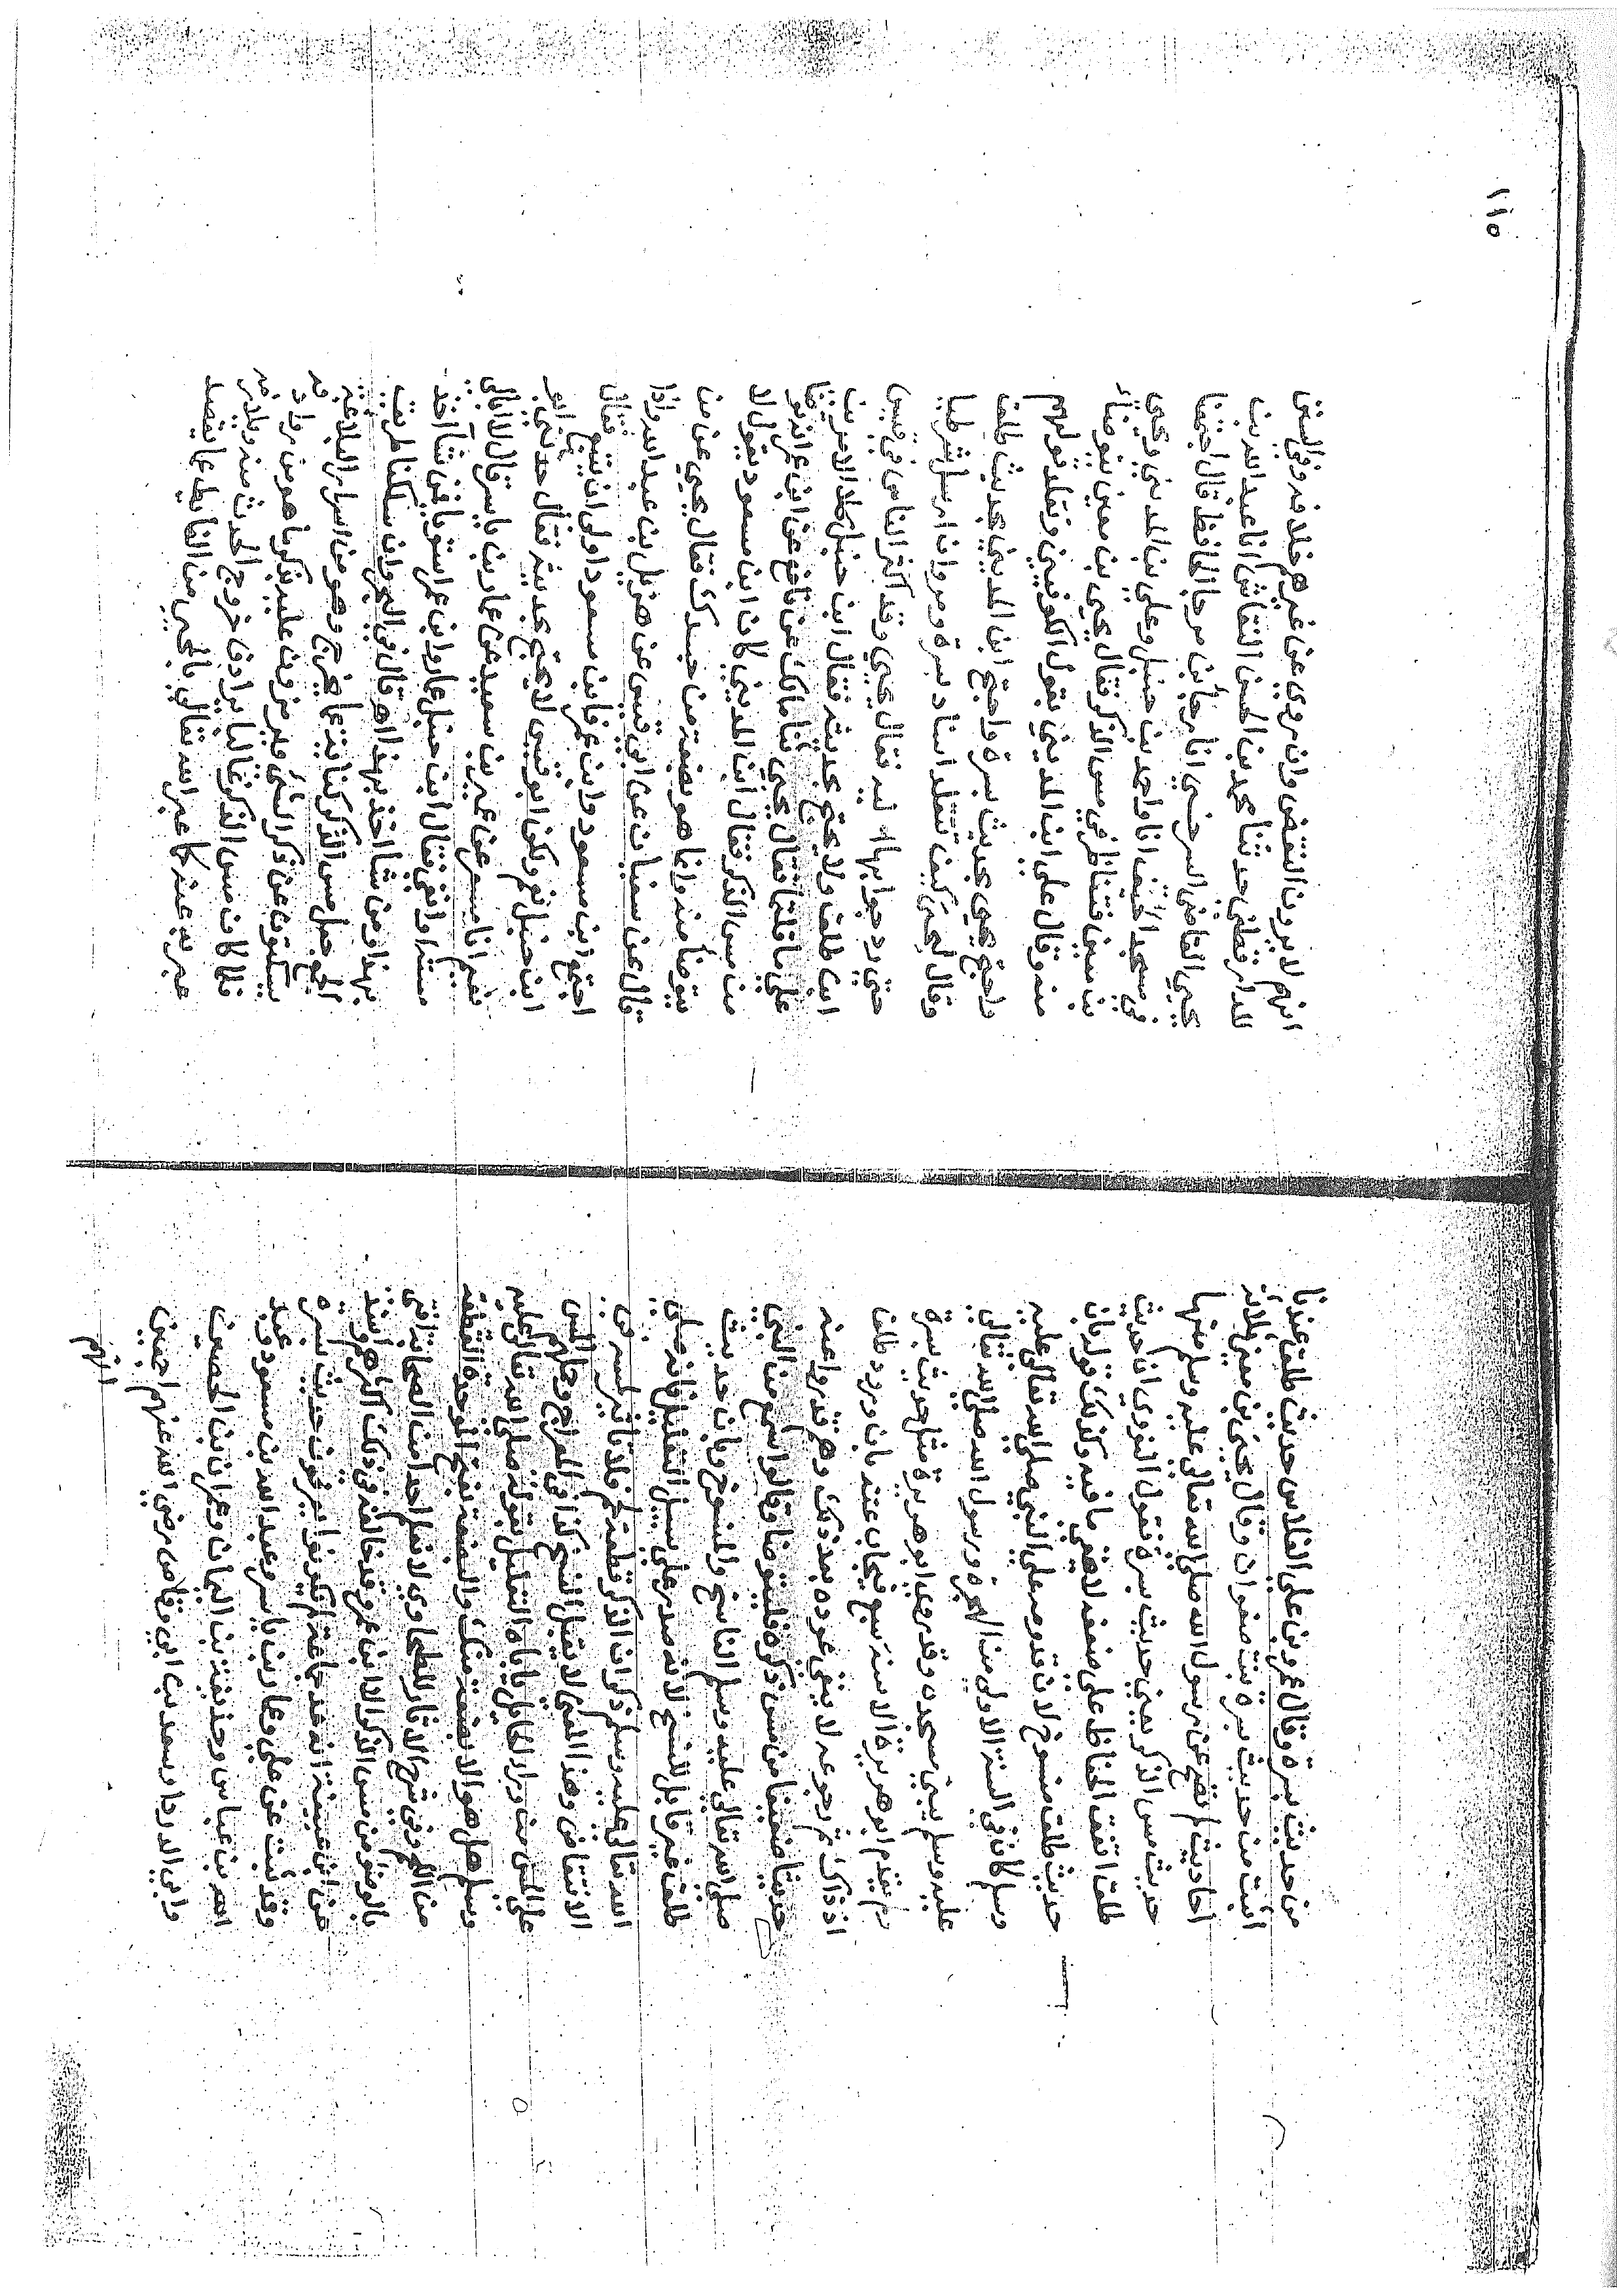 من حديث بسرة وقال عمرو بن علي الفلاس حديث طلق عندنا
اثبت من حديث بسرة بنت صفوان وقال يحيى بن معين ثلاثة
احاديث لم تصح عن رسول الله صلى الله تعالى عليه وسلم منها
حديث مس الذكر يعني حديث بسرة فقول النووي ان حديث
طلق اتفق الحفاظ على ضعفه لا يخفى ما فيه وكذلك قوله بان
حديث طلق منسوخ لان قدومه على النبي صلى الله تعالى عليه
وسلم كان في السنة الاولى من الهجرة ورسول الله صلى الله تعالى
عليه وسلم يبني مسجده وقد روى ابو هريرة مثل حديث بسرة
ولم يقدم ابو هريرة الا سنة سبع فيجاب عنه بان ورود طلق
اذ ذاك ثم رجوعه لا ينفي عوده بعد ذلك وهم قد رووا عنه
حديثا ضعيفا من مس ذكره فليتوضا وقالوا سمع من النبي
صلى الله تعالى عليه وسلم الناسخ والمنسوخ وبان حديث
طلق غير قابل للنسخ لانه صدر على سبيل التعليل فانه صلى
الله تعالى عليه وسلم ذكر ان الذكر قطعة لحم فلا تاثير لمسه في
الانتقاض وهذا المعنى لا يقبل النسخ كذا في المعراج وحملهم المس
على اللمس من وراء الحائل ياباه التعليل بقوله صلى الله تعالى عليه
وسلم هل هو الا بضعة منك والبضعة بفتح الموحدة القطعة
من اللحم وفي شرح الاثار للطحاوي لا نعلم احدا من الصحابة افتى
بالوضوء من مس الذكر الا ابن عمر وقد خالفه في ذلك اكثرهم واسند
عن ابن عيينة انه عد جماعة لم يكونوا يعرفون حديث بسرة
وقد ثبت عن علي وعمار بن ياسر وعبد الله بن مسعود وعبد
الله بن عباس وحذيفة بن اليمان وعمران بن الحصين
وابي الدرداء وسعد بن ابي وقاص رضي الله عنهم اجمعين
انهم
١١٥
انهم لا يرون النقض وان روي عن غيرهم خلافه وفي السنن
للدارقطني حدثنا محمد بن الحسن النقاش انا عبد الله بن
يحيى القاضي السرخسي انا رجاء بن مرجا الحافظ قال اجتمعنا
في مسجد الخيف انا واحمد بن حنبل وعلي بن المديني ويحيى
بن معين فتناظرنا في مس الذكر فقال يحيى بن معين يتوضا
منه وقال علي ابن المديني بقول الكوفيين وتقلد قولهم
واحتج يحيى بحديث بسرة واحتج ابن المديني بحديث طلق
وقال ليحيى كيف تتقلد اسناد بسرة ومروان ارسل شرطيا
حتى رد جوابها اليه فقال يحيى وقد اكثر الناس في قيس
ابن طلق ولا يحتج بحديثه فقال ابن حنبل كلا الامرين
على ما قلتما فقال يحيى ثنا مالك عن نافع عن ابن عمر انه توضا
من مس الذكر فقال ابن المديني كان ابن مسعود يقول لا
يتوضا منه وانما هو بضعة من جسدك فقال يحيى عن من
قال عن سفيان عن ابي قيس عن هزيل بن عبد الله واذا
اجتمع ابن مسعود وابن عمر فابن مسعود اولى ان يتبع فقال
ابن حنبل نعم ولكن ابو قيس لا يحتج بحديثه فقال حدثني ابو
نعيم انا مسعر عن عمير بن سعيد عن عمار بن ياسر قال لا ابالي
مسته او انفي فقال ابن حنبل عمار وابن عمر استويا فمن شا اخذ
بهذا ومن شا اخذ بهذا اهـ قال في البحر وان سلكنا طريق
الجمع جعل مس الذكر كناية عما يخرج وهو من اسرار البلاغة
يسكتون عن ذكر الشيء ويرمزون عليه بذكر ما هو من روادفه
فلما كان مس الذكر غالبا يرادف خروج الحدث منه ويلازمه
عبر به عنه كما عبر الله تعالى بالمجيء من الغائط عما يقصد